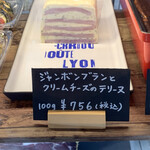 OUTE
LYON
ジャンボンブランと
クリームチーズのテリーヌ
100g ¥756(税込)